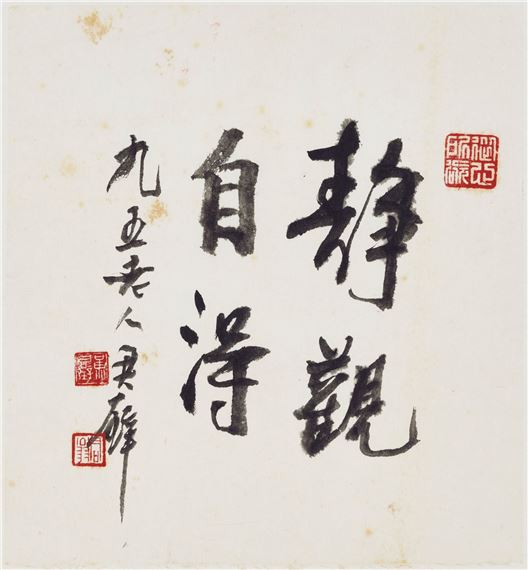 靜觀
自得
九五老人君璧